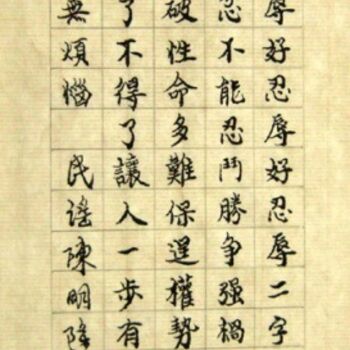 辱好忍辱好忍辱二字
忍不能忍鬥勝爭强禍
破性命多難保逞權勢
了不得了讓人一步有
無煩惱 民謠陳明